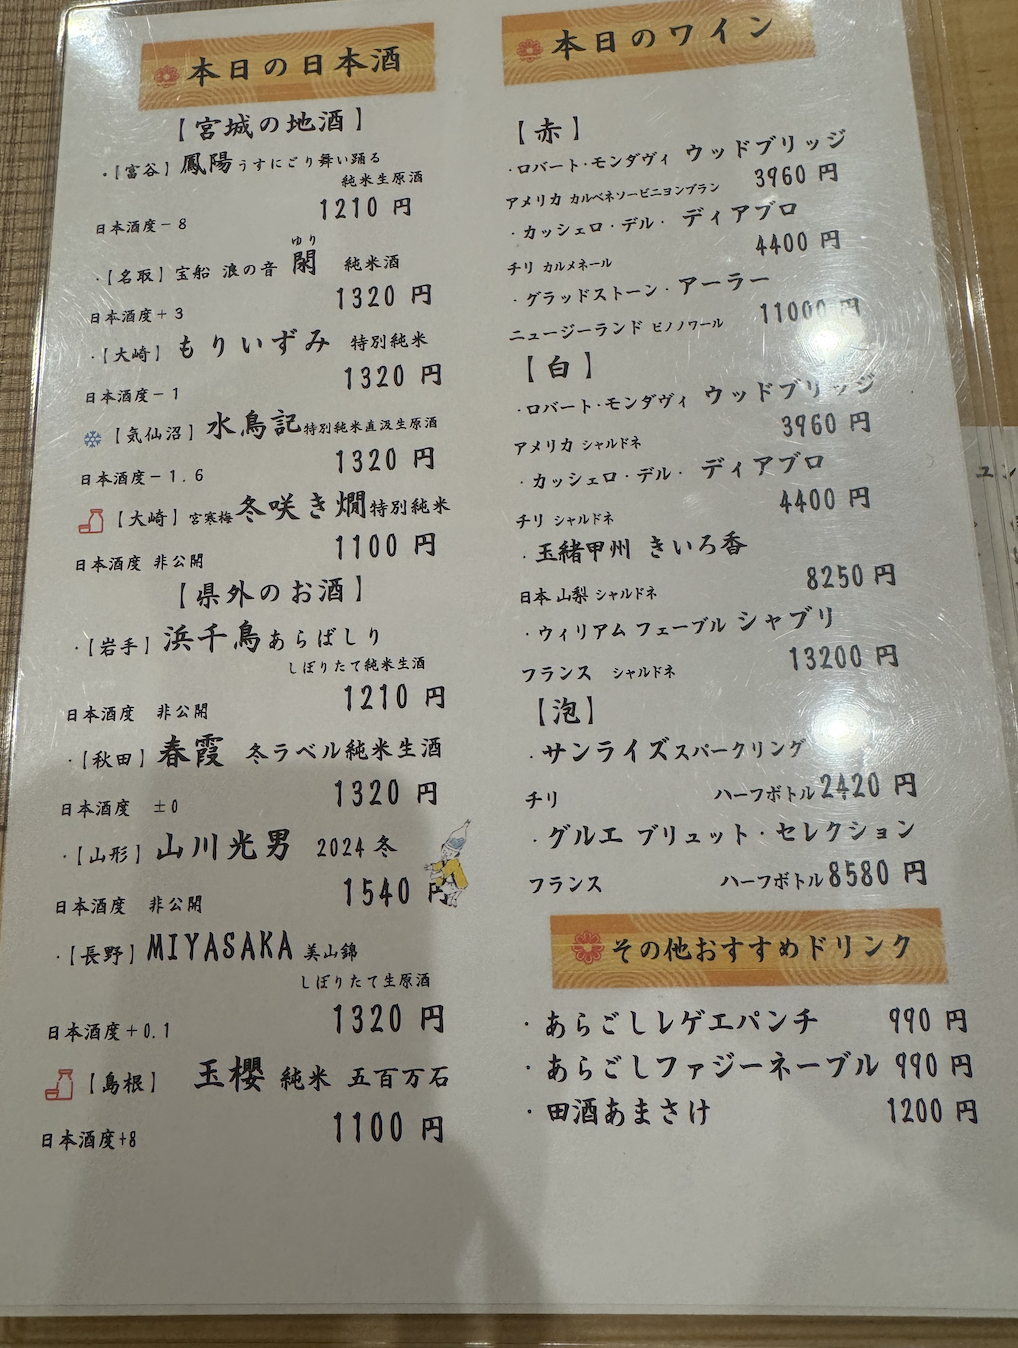 本日の日本酒
【宮城の地酒】
・【富谷】鳳陽うすにごり舞い踊る
純米生原酒
日本酒度－8 1210 円
ゆり
・【名取】宝船 浪の音 閖 純米酒
日本酒度＋3 1320 円
・【大崎】もりいずみ 特別純米
日本酒度－1 1320 円
【気仙沼】水鳥記特別純米直汲生原酒
日本酒度－1.6 1320 円
【大崎】宮寒梅冬咲き燗特別純米
日本酒度 非公開 1100 円
【県外のお酒】
・【岩手】浜千鳥あらばしり
しぼりたて純米生酒
日本酒度 非公開 1210 円
・【秋田】春霞 冬ラベル純米生酒
日本酒度 ±0 1320 円
・【山形】山川光男 2024 冬
日本酒度 非公開 1540 円
・【長野】MIYASAKA 美山錦
しぼりたて生原酒
日本酒度＋0.1 1320 円
【島根】 玉櫻 純米 五百万石
日本酒度+8 1100 円
本日のワイン
【赤】
・ロバート・モンダヴィ ウッドブリッジ
アメリカ カルベネソービニヨンブラン 3960 円
・カッシェロ・デル・ ディアブロ
チリ カルメネール 4400 円
・グラッドストーン・アーラー
ニュージーランド ピノノワール 11000 円
【白】
・ロバート・モンダヴィ ウッドブリッジ
アメリカ シャルドネ 3960 円
・カッシェロ・デル・ ディアブロ
チリ シャルドネ 4400 円
・玉緒甲州 きいろ香
日本 山梨 シャルドネ 8250 円
・ウィリアム フェーブル シャブリ
フランス シャルドネ 13200 円
【泡】
・サンライズスパークリング
チリ ハーフボトル2420 円
・グルエ ブリュット・セレクション
フランス ハーフボトル8580 円
その他おすすめドリンク
・あらごしレゲエパンチ 990 円
・あらごしファジーネーブル 990 円
・田酒あまさけ 1200 円